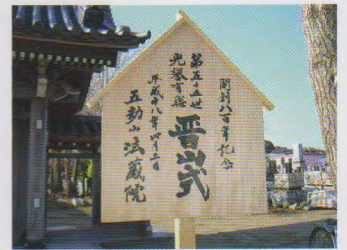 開創八百年記念
晋山式
第五十五世
光盤有龍
平成十八年四月二日
五劫山 法蔵院